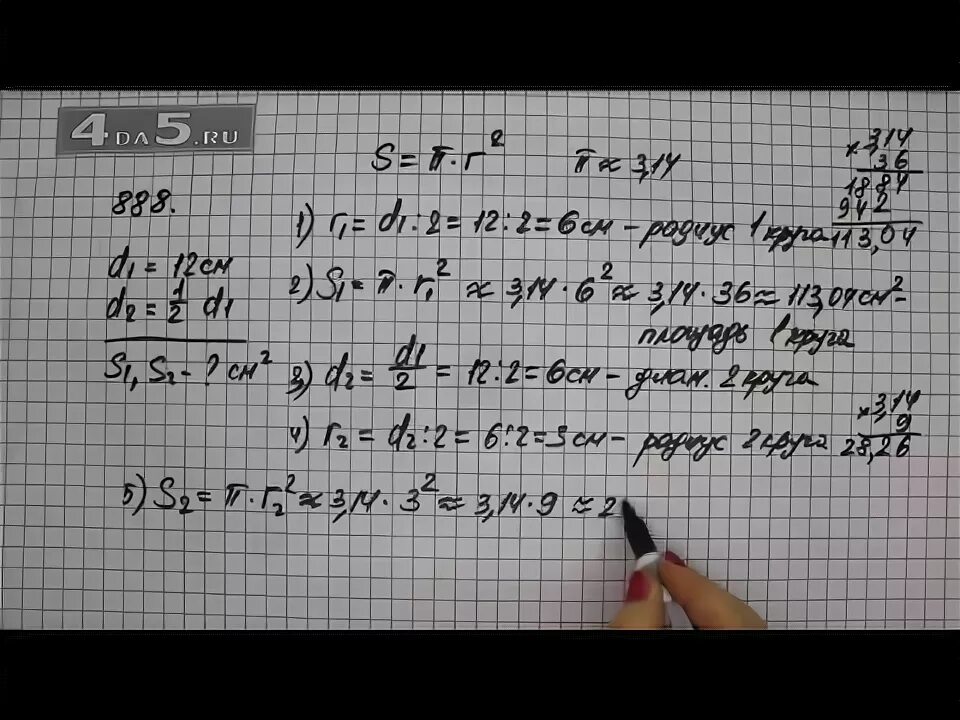 4DA5.RU
S = π · r²   π ≈ 3,14
888.
d₁ = 12 см
d₂ = 1/2 d₁
S₁, S₂ - ? см²
1) r₁ = d₁ : 2 = 12 : 2 = 6 см - радиус 1 круга
2) S₁ = π · r₁² ≈ 3,14 · 6² ≈ 3,14 · 36 ≈ 113,04 см² -
площадь 1 круга
3) d₂ = d₁/2 = 12 : 2 = 6 см - диам. 2 круга
4) r₂ = d₂ : 2 = 6 : 2 = 3 см - радиус 2 круга
5) S₂ = π · r₂² ≈ 3,14 · 3² ≈ 3,14 · 9 ≈ 2
× 3,14
36
1884
942
113,04
× 3,14
9
28,26